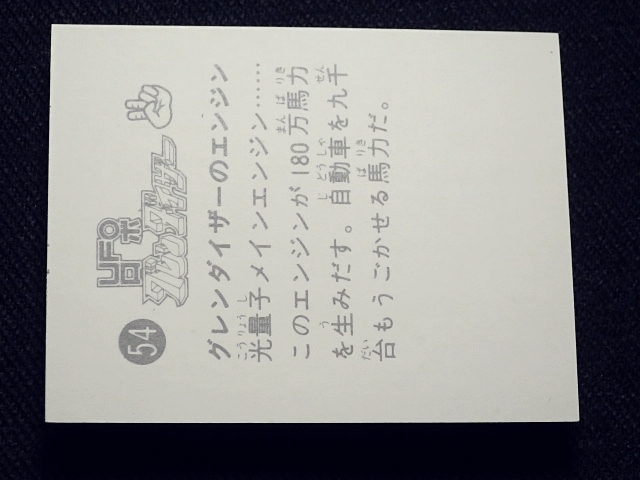 54
UFOロボ
グレンダイザー
グレンダイザーのエンジン
光量子メインエンジン……
このエンジンが180万馬力
を生みだす。自動車を九千
台もうごかせる馬力だ。